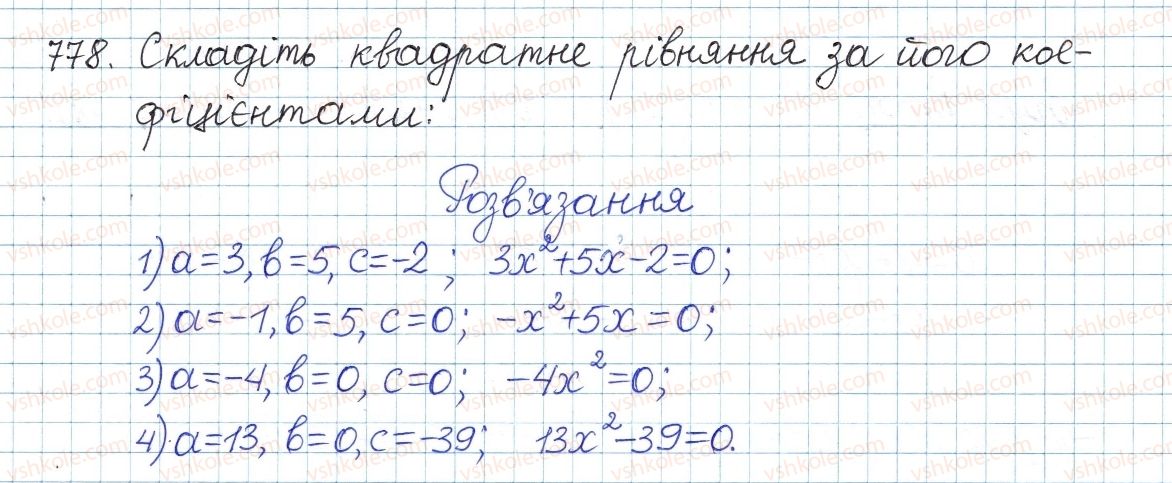 778. Складіть квадратне рівняння за його кое-
фіцієнтами:
Розв'язання
1) a=3, b=5, c=-2; 3x²+5x-2=0;
2) a=-1, b=5, c=0; -x²+5x=0;
3) a=-4, b=0, c=0; -4x²=0;
4) a=13, b=0, c=-39; 13x²-39=0.